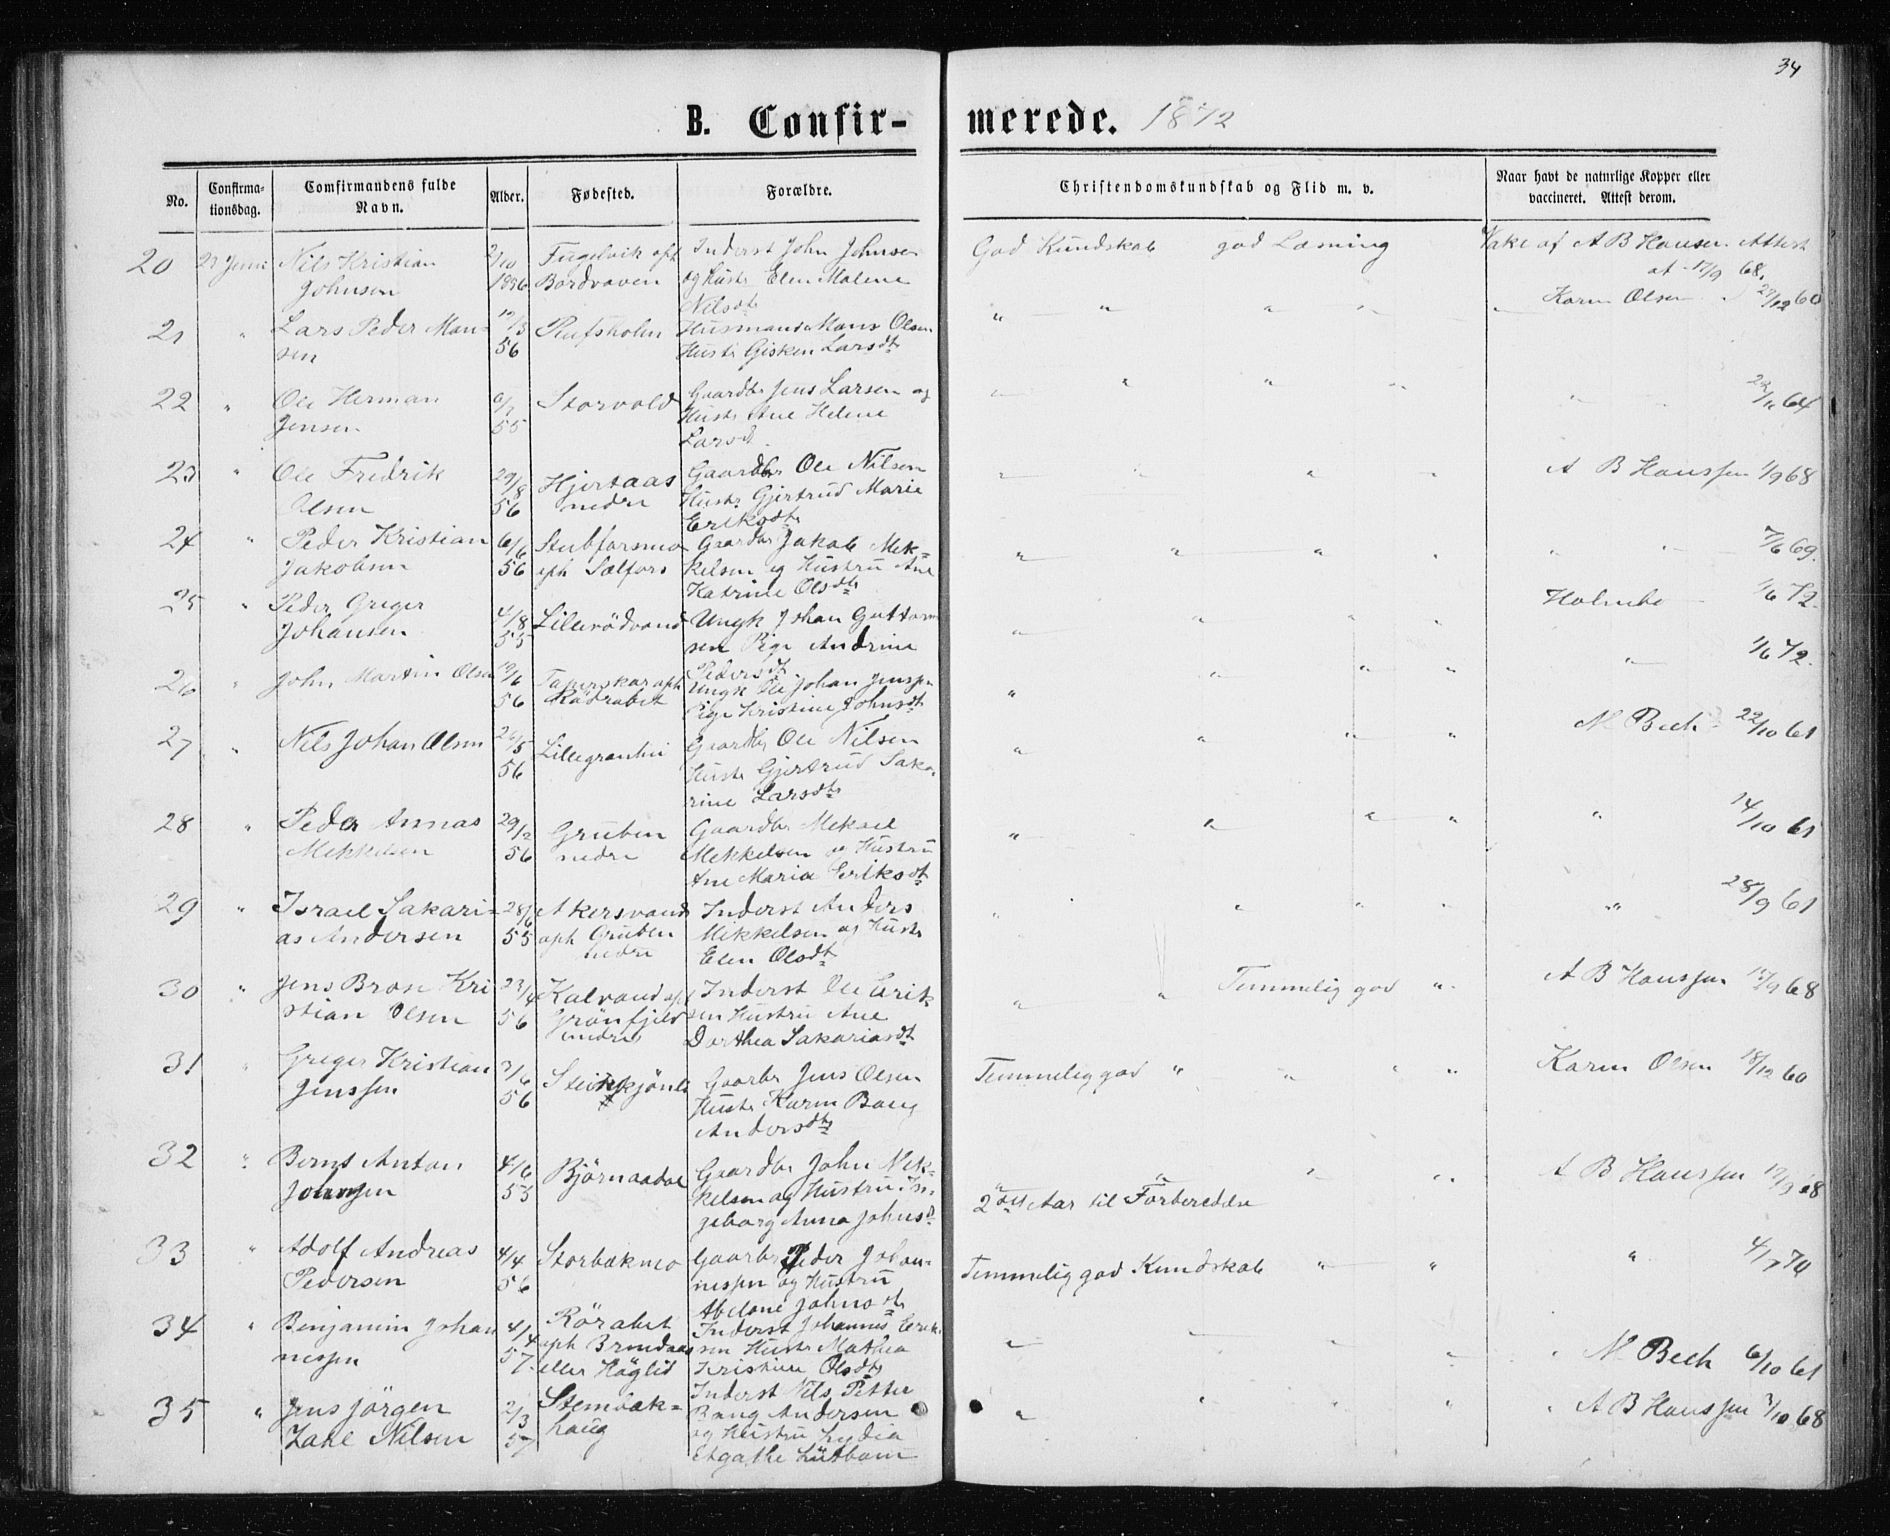 34
B. Confir- merede. 1872
No.
Confirma-
tionsdag.
Comfirmandens fulde
Navn.
Alder.
Fødested.
Forældre.
Christendomskundskab og Flid m. v.
Naar havt de naturlige Kopper eller
vaccineret. Attest derom.
20 Nils Kristian
Johnsen
2/10
1856
Bordvaven
Inderst John Johnsen
og Hustr Elen Malene
Nilsdtr
God Kundskab god Læsning
Vakc af A B Hansen Attest
at 17/9 68.
21 " Lars Peder Man-
sen
12/3
56
Husmand Mons Olsen
Hustr Gisken Larsdtr
" " " "
Karen Olsen 29/12 60
22 " Ole Herman
Jensen
55
Storvold
Gaardbr Jens Larsen og
Hustr Ane Helene
Larsdt.
" " " "
22/11 64
23 " Ole Fredrik
Olsen
29/8
56
Hjertaas
nedre
Gaardbr Ole Nilsen
Hustr. Gjertrud Marie
Eriksdtr
" " " "
A B Hanssen 1/9 68
24 " Peder Kristian
Jakobsen
6/6
56
Stubforsmo
oph Sælfors
Gaardbr Jakob Mek-
kelsen og Hustru Ane
Katrine Olsdtr
" " " "
" " 7/6 69.
25 " Peder Greger
Johansen
4/8
55
Lillerödvand
Ungk Johan Guttorm
sen Pige Andrine
Pedersdt.
" " " "
Holmbo 1/6 72.
26 " John Martin Olsen
12/6
56
Ungk Ole Johan Jensen
Pige Kristine Johnsdt
" " " "
" 1/6 72.
27 " Nils Johan Olsen
26/5
56
Gaardbr Ole Nilsen
Hustr Gjertrud Saka-
rine Larsdtr
" " " "
M Bech 22/10 61
28 " Peder Annas
Mekkelsen
29/2
56
Gruben
nedre
Gaardbr Mekael
Mekkelsen og Hustru
Ane Maria Eriksdt
" " " "
" 14/10 61
29 " Israel Sakari-
as Andersen
28/6
55
Akersvand
oph Gruben
nedre
Inderst Anders
Mikkelsen og Hustr
Elen Olsdt
" " " "
" 28/9 61
30 " Jens Brose Kri
stian Olsen
23/4
56
Kalvand op
Grönfjeld
nedre
Inderst Ole Erik
sen Hustru Ane
Dorthea Sakariasdt
" " Temmelig god "
A B Hanssen 15/9 68
31 " Greger Kristian
Jenssen
7/6
56
Gaarbr Jens Olsen
Hustr Karen Bang
Andersdtr
Temmelig god " " " "
Karen Olsen 18/12 60
32 " Bernt Anton
Johnsen
4/6
55
Björnaadal
Gaardbr John Mek-
kelsen og Hustru In-
geborg Anna Johnsd
" " " "
2det Aar til Forberedelse
A B Hanssen 17/9 68
33 " Adolf Andreas
Pedersen
4/4
56
Storbækmo
Gaarbr Peder Johan-
nessen og Hustru
Abelone Johnsdtr
Temmelig god Kundskab " "
" 4/7 70
34 " Benjamin Johan
nessen
4/4
57
Röralut
oph Brendaas
eller Höglid
Inderst Johannes Erik
sen Hustr Mathea
Kristine Olsdtr
" " "
" M Bech 6/10 61
35 " Jens Jörgen
Zahl Nilsen
2/3
57
Stembæk-
haug
Inderst Nils Petter
Bang Andersen
og Hustru Lydia
Agathe
" " " "
" A B Hanssen 7/10 68